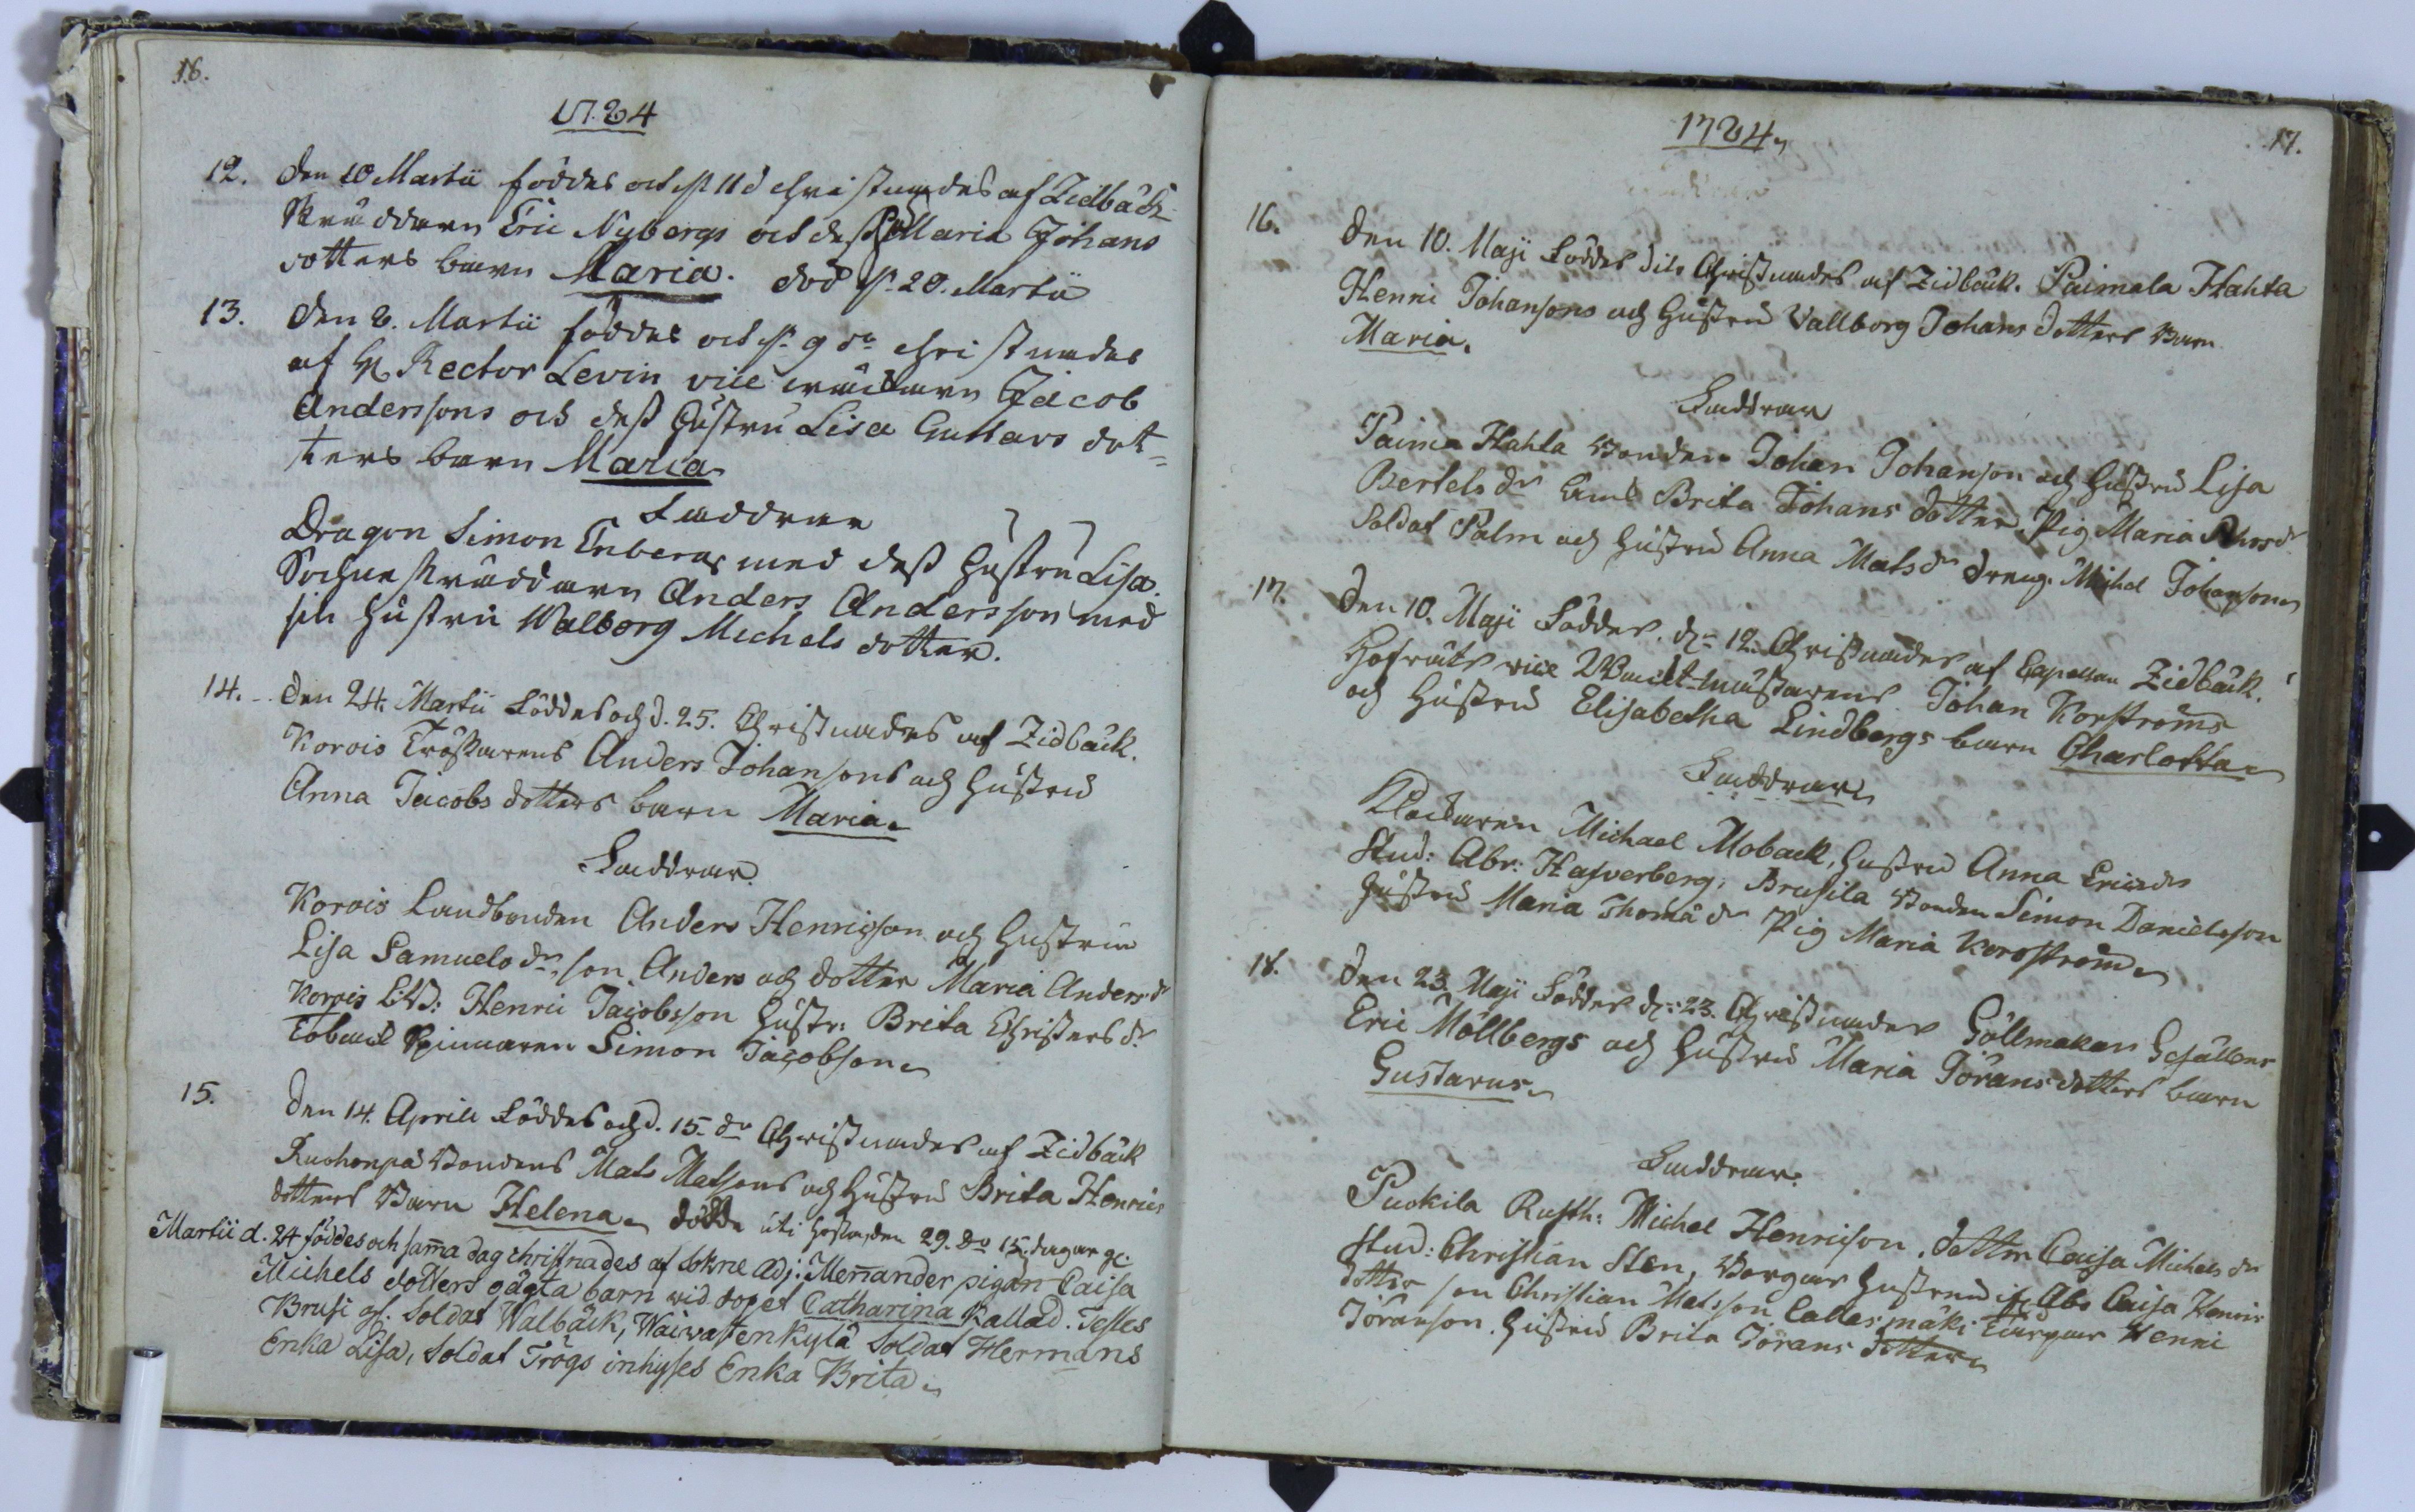 16.
1784
12. den 10 Martii föddes och dn 11 d christnades af Zidbäck
Skräddaren Eric Nybergs och dess H. Maria Johans
dotters barn Maria. död dn 20. Martii
13. den 8. Martii föddes och dn 9 do christnades
af H. Rector Levin vice wäcktaren Jacob
Anderssons och dess Hustru Lisa Gustavs dot=
ters barn Maria
Faddrar
Dragon Simon Enberg med dess Hustru Lisa.
Sochne skräddaren Anders Andersson med
sin Hustru Walborg Michels dotter.
14. den 24. Martii Föddes och d. 25. Christnades af Zidbäck.
Korois Anders Johansons och Hustru
Anna Jacobs dotters barn Maria.
Faddrar.
Korois Landbonden Anders Henricsson och Hustrun
Lisa Samuels dr, son Anders och dotter Maria Anders dr
Korois Henric Jacobsson Hustr: Brita Christers dr
Tobaks Spinnaren Simon Jacobson
15. den 14. Aprill Föddes och d. 15. do Christnades af Zidbäck
Ruohonpä Bondens Mats Matsons och Hustru Brita Henrics
dotters Barn Helena. dödde uti hosta, den 29. do 15. dagar gl.
Martii d. 24 föddes och sama dag christnades af Sokne Adj: Menander pigan Caisa
Michels dotters oägta barn wid dopet Catharina Kallad. Testes
Brusi gf. Soldat Walbäck, Waiwasten kylä Soldat Hermans
Enka Lisa, Soldat Trögs inhyses Enka Brita.
17.
1784.
16. den 10. Maji Föddes dito Christnades af Zidbäck. Paimala Hahta
Henric Johansons och Hustru Vallborg Johans dotters Barn
Maria.
Faddrar
Paima Hahta Bonden Johan Johanson och Hustru Lisa
Bertels dr Brita Johans dotter, Pig Maria
Soldat Palm och Hustru Anna Mats dr dreng. Michel Johanson
17. den 10. Maji Födder. dn 12. Christnades af Capellan Zidbäck.
Hofräts vice Wackt-mästarens Johan Korströms
och Hustru Elisabetha Lindbergs barn Charlotta
Faddrar
Klockaren Michael Moback, Hustru Anna Ericsdr
Stud: Abr: Hafverberg, Brusila Bonden Simon Danielsson
Hustru Maria Thomä dr Pig Maria Korström
18. den 23. Maji Födder dn: 23. Christnades Göllmakar Gesällens
Eric Möllbergs och Hustru Maria Görans dotters barn
Gustavus.
Faddrar.
Puokila Rusth: Michel Henricson, dotter Caisa Michels dr
Stud: Christian Sten, Borgar Hustrun if. Åbo Caisa Henrics
dotter son Christian Matsson Callesmäki Torpar Henric
Göranson. Hustru Brita Görans dotter